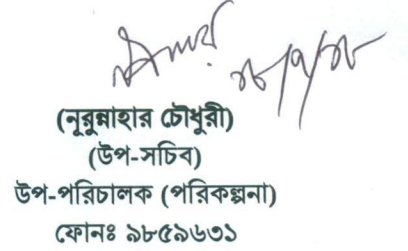 (নূরুন্নাহার চৌধুরী)
(উপ-সচিব)
উপ-পরিচালক (পরিকল্পনা)
ফোনঃ ৯৮৫৯৬৩১